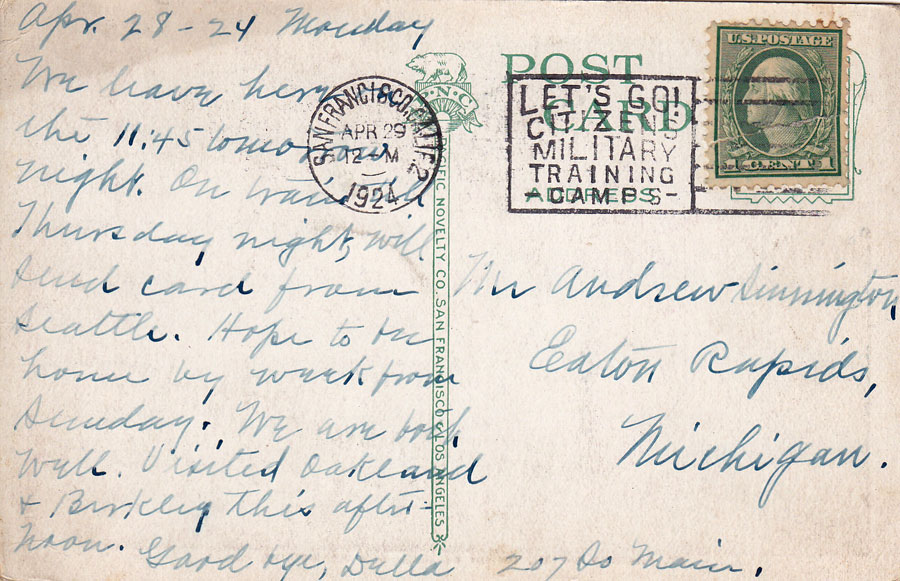 Apr. 28-24 Monday
We leave here
the 11:45 tomorrow
night. On train till
Thursday night, will
send card from
Seattle. Hope to be
home by week from
Sunday. We are both
well. Visited Oakland
& Berkley this after-
noon. Good bye, Della
SAN FRANCISCO, CALIF. 2
APR 29
12-M
1924
P.N.C.
PACIFIC NOVELTY CO. SAN FRANCISCO & LOS ANGELES
POST
CARD
ADDRESS
LET'S GO!
CITIZENS
MILITARY
TRAINING
-CAMPS-
U.S. POSTAGE
1 CENT 1
Mr Andrew Sinnington,
Eaton Rapids,
Michigan.
207 So Main.